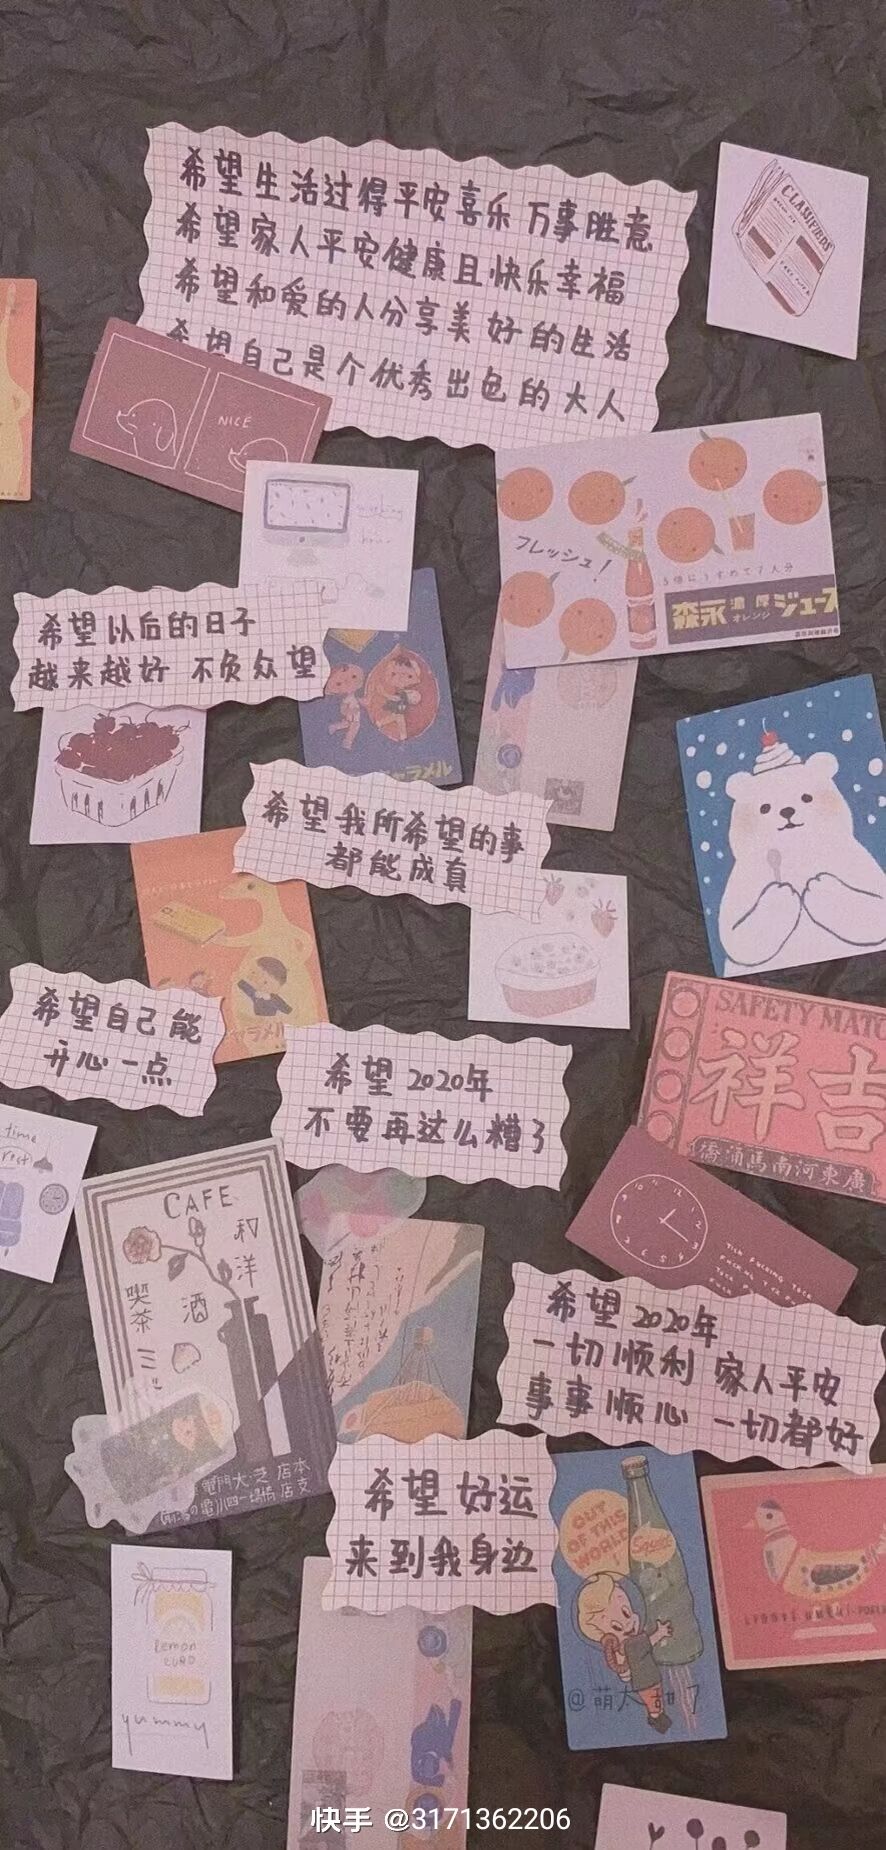 希望生活过得平安喜乐 万事胜意
希望家人平安健康且快乐幸福
希望和爱的人分享美好的生活
希望自己是个优秀出色的大人
CLASSIFIEDS
NICE
フレッシュ!
5倍にうすめて7人分
森永 濃厚 オレンジ ジュース
希望以后的日子
越来越好 不负众望
希望我所希望的事
都能成真
希望自己能
开心一点
ャラメル
希望2020年
不要再这么糟了
SAFETY MATC
祥吉
僑涌馬南河東廣
time
rest
CAFE
和洋
酒
喫茶
希望2020年
一切顺利 家人平安
事事顺心 一切都好
希望好运
来到我身边
OUT
OF THIS
WORLD!
Squeeze
Lemon
CURD
yummy
@萌大甜了
快手 @3171362206